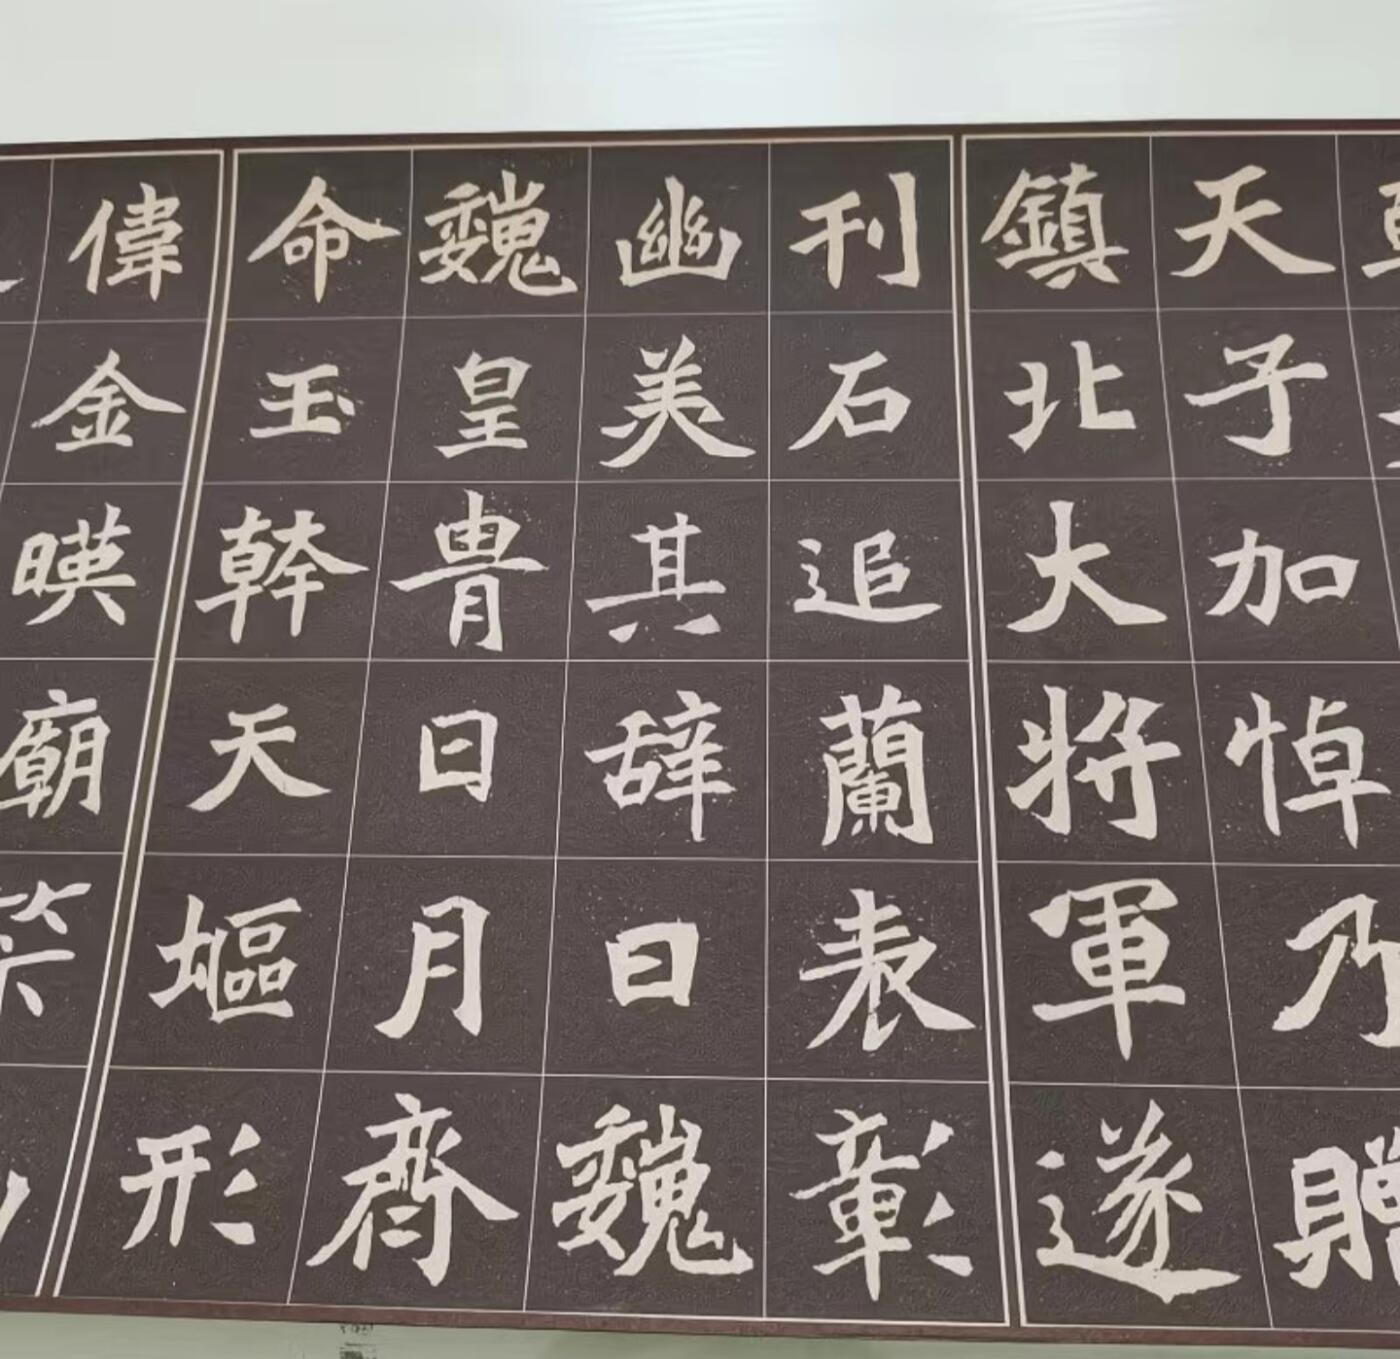 天子加悼乃贈
鎮北大將軍遂
刊石追蘭表彰
幽美其辞曰魏
魏皇胄日月齊
命玉幹天塸形
偉金暎廟